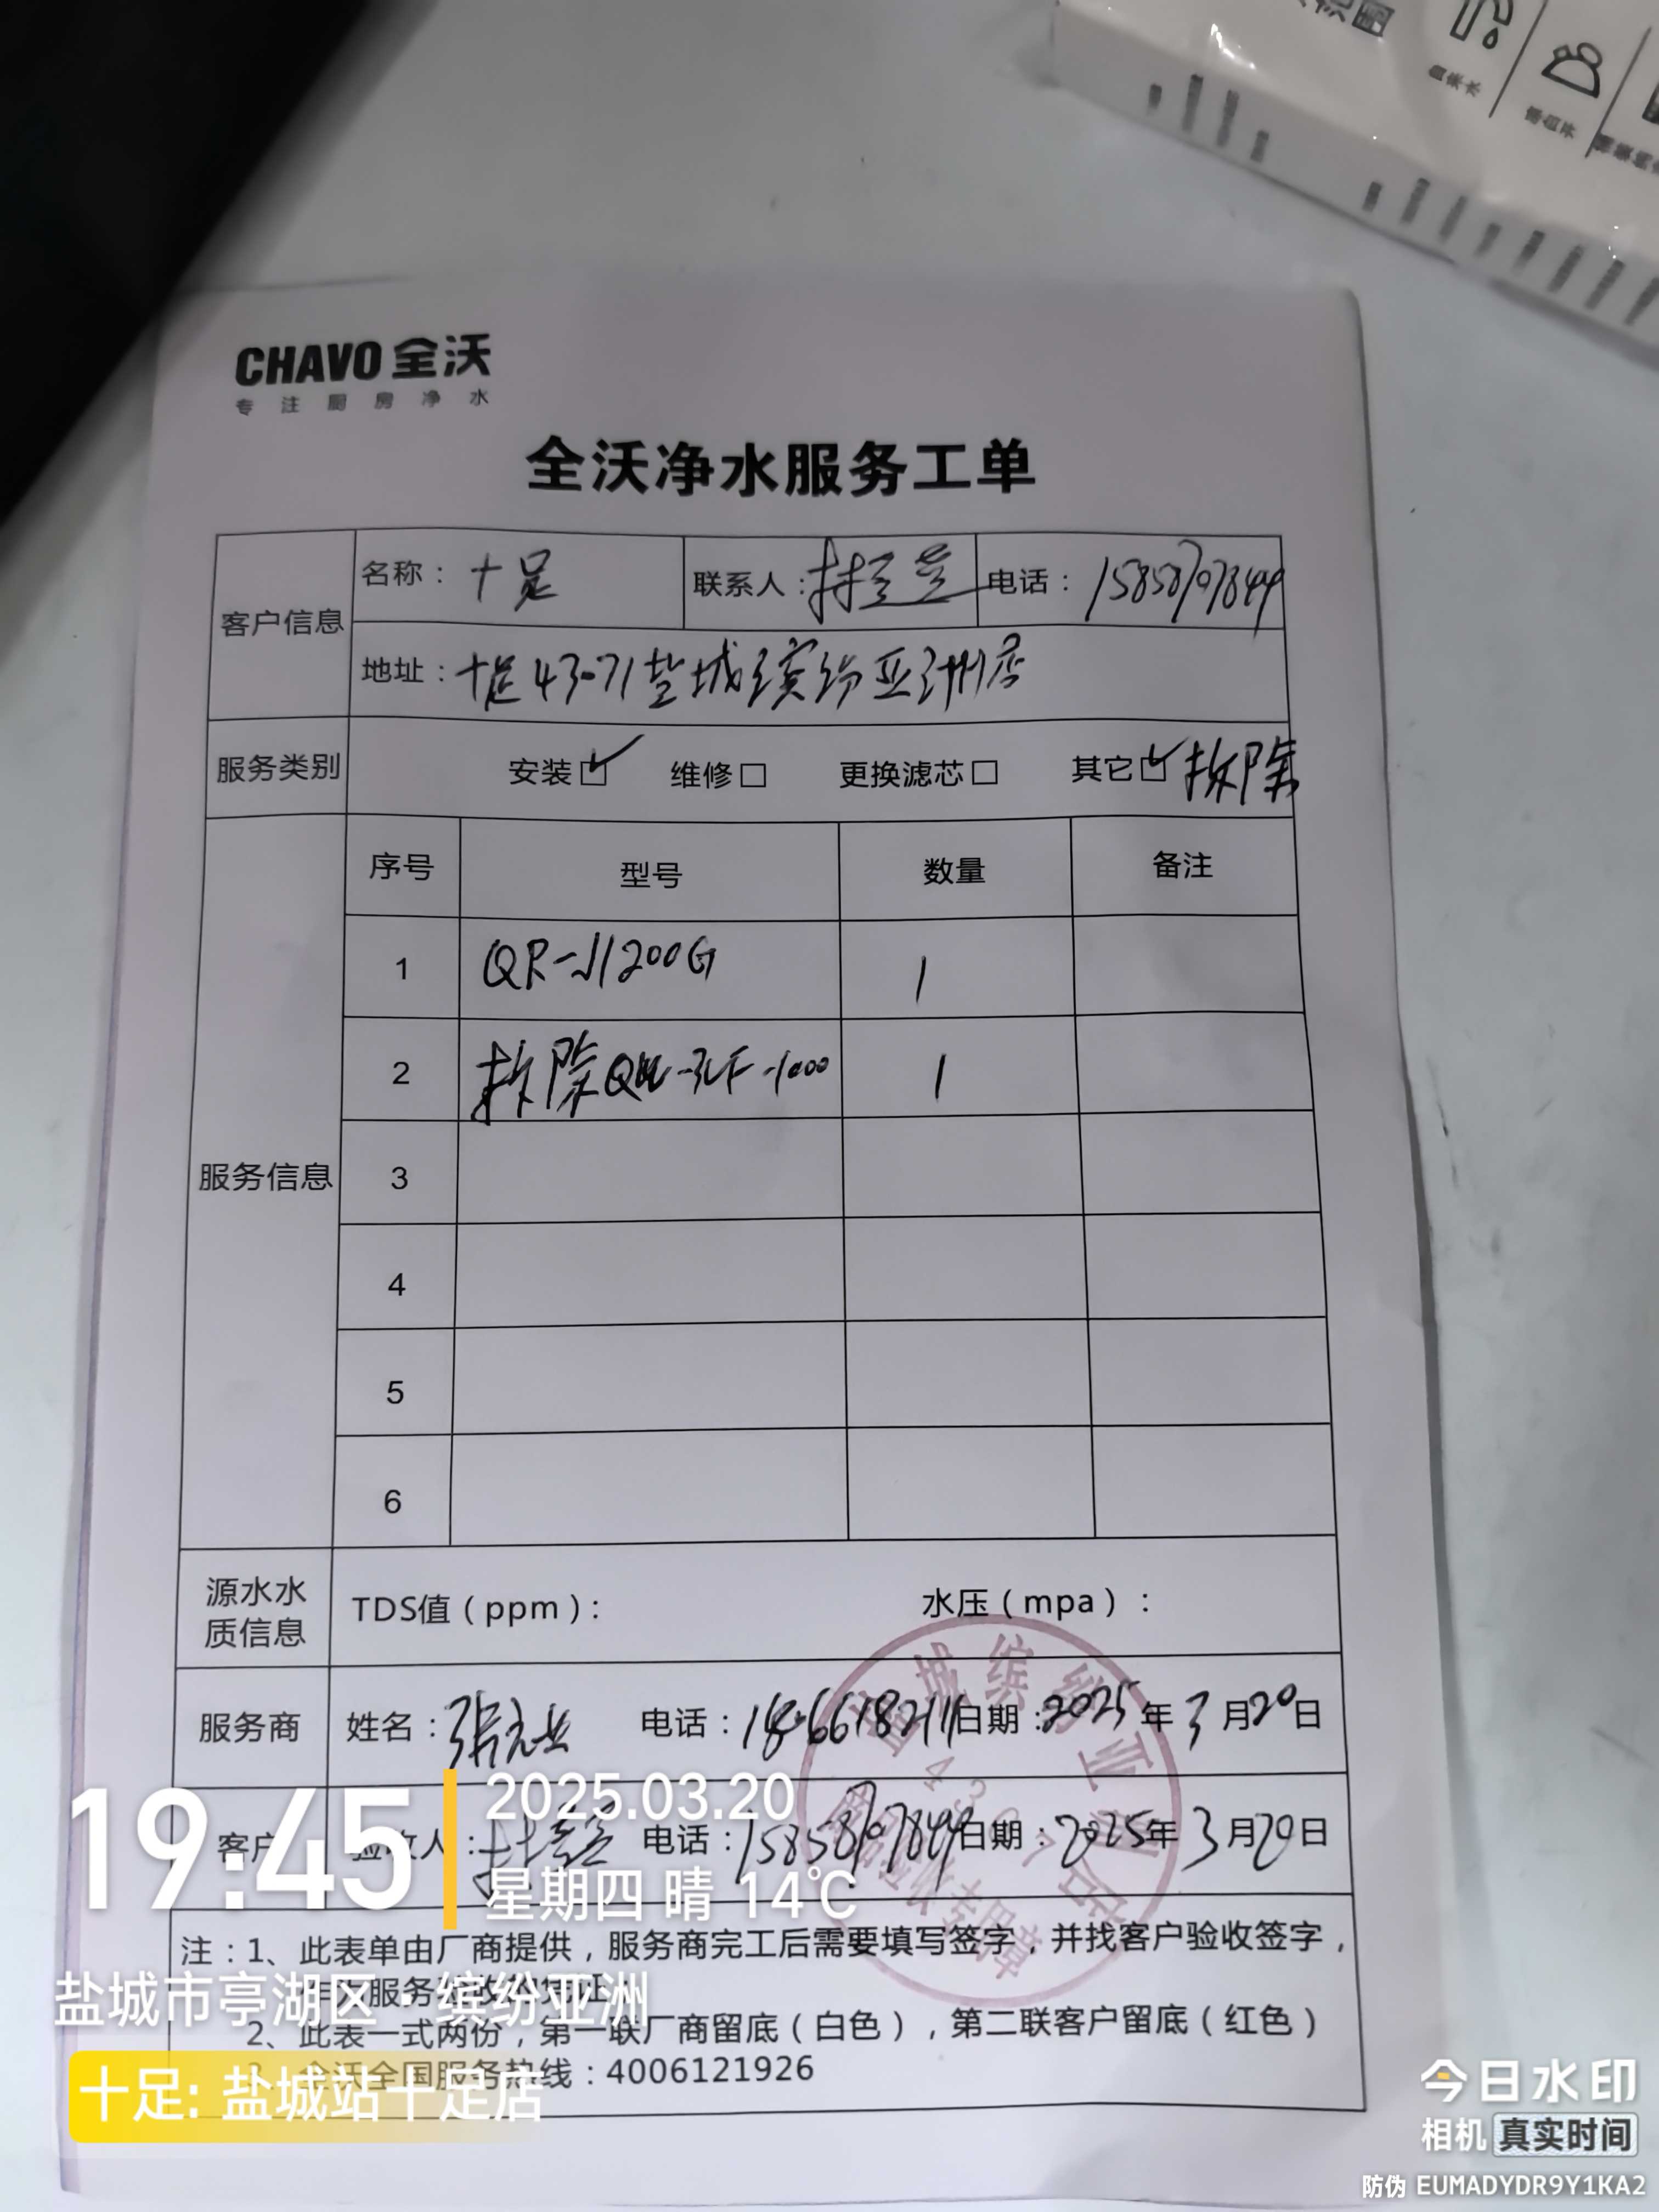 自来水
凉白开
CHAVO 全沃
专注厨房净水
全沃净水服务工单
客户信息 名称：十足 联系人： 电话：15858797849
地址：十足43071盐城缤纷亚洲店
服务类别 安装☑ 维修□ 更换滤芯□ 其它☑ 拆除
服务信息 序号 型号 数量 备注
1 QR-J1200G 1
2 拆除 1
3
4
5
6
源水水质信息 TDS值（ppm）： 水压（mpa）：
服务商 姓名： 电话： 日期：2025年3月20日
客户 验收人： 电话：15858797849 日期：2025年3月20日
盐城缤纷亚洲店
4307
专用章
注：1、此表单由厂商提供，服务商完工后需要填写签字，并找客户验收签字，
2、此表一式两份，第一联厂商留底（白色），第二联客户留底（红色）
3、全沃全国服务热线：4006121926
19:45
2025.03.20
星期四 晴 14℃
盐城市亭湖区·缤纷亚洲
十足: 盐城站十足店
今日水印
相机 真实时间
防伪 EUMADYDR9Y1KA2